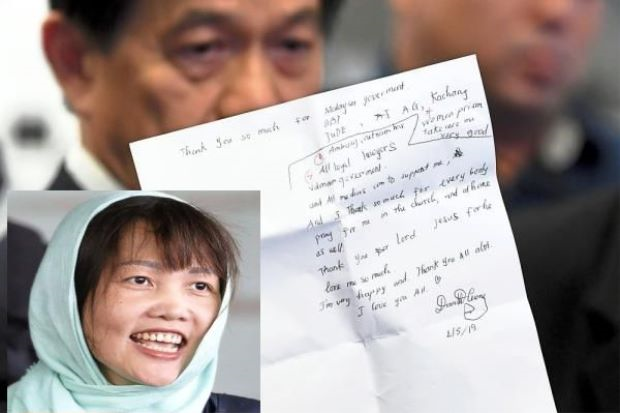 Thank You so much for Malaysian goverment
JUDE, A.G, Kachang
women prison
Ambassy vietnam
take care me
very good
All loyal lawyers
Vietnam government
and All medias com to support me,
And I Thank so much for every body
pray for me in the church, and at home
as well.
Thank you our lord Jesus for his
love me so much
I'm very happy and Thank you All alot.
I love you All.
2/5/19